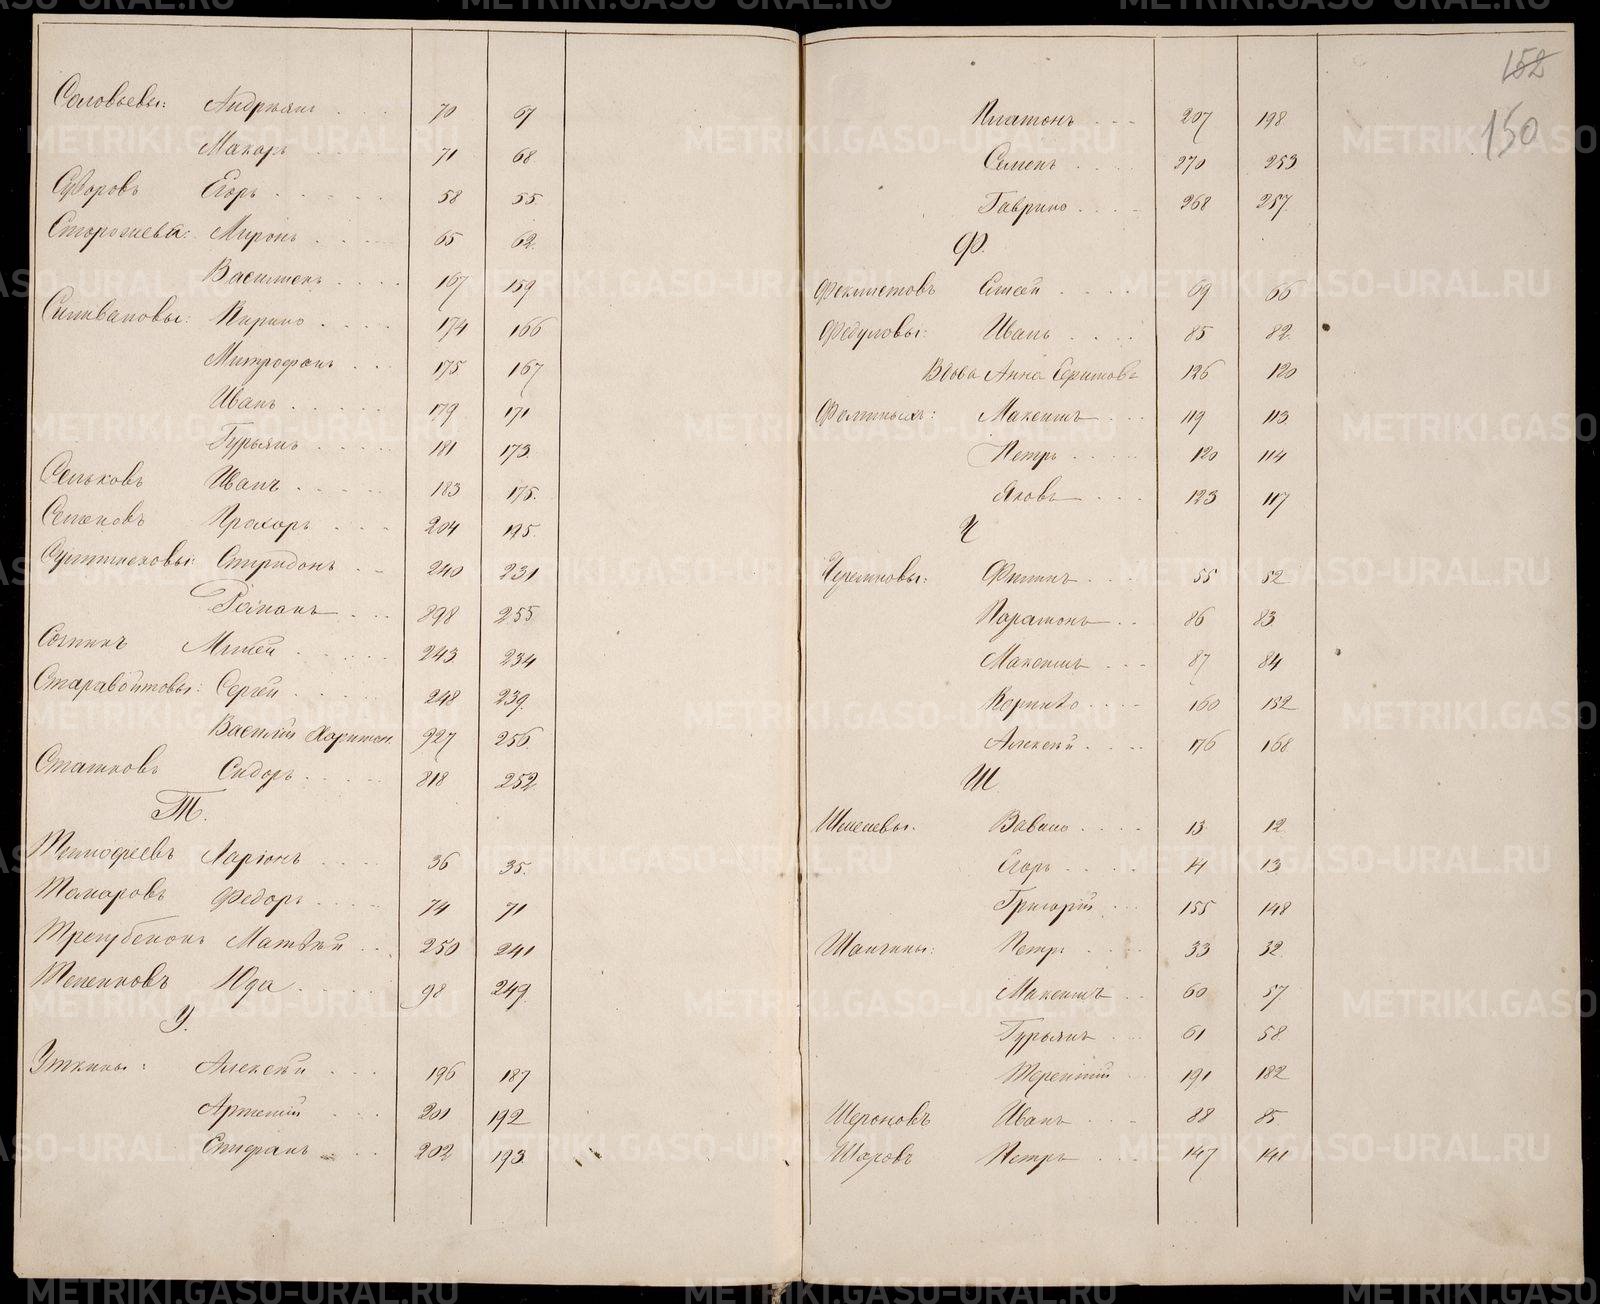 Соловьевы: Андреянъ . . . 70 67
Макаръ . . . 71 68
Суворовъ Егоръ . . . . 58 55
Сторожевы: Миронъ . . . 65 62.
Василискъ . . . . 167 159
Силивановы: Кирило . . . . 174 166
Митрофанъ . . . 175 167
Иванъ . . . . . 179 171
Гурьянъ . . . . . 181 173.
Сеньковъ Иванъ . . . . . 183 175.
Семеновъ Прохоръ . . . 204 195.
Спиридонъ . . 240 231
898 255
Мокей . . . . . 243 234
Старавойтовы: Сергей . . . . . 248 239.
Василий Харитон. 927 256
Сташковъ Сидоръ . . . . . 818 252
Т.
Тимофеевъ Ларіонъ . . . . 36 35.
Токаровъ Федоръ . . . . 74 71
Матвѣй . . 250 241
Юда . . . . . 98 249
У.
Уткины: Алексѣй . . . 196 187
Артемій . . . 201 192
Стефанъ . . . 202 193.
152
150
Платонъ . . . 207 198
Семенъ . . . . 270 253
Гаврило . . . . 268 257
Ф.
Феклистовъ Елисей . . . . 69 66
Федуловы: Иванъ . . . . 85 82.
Вдова Анна 126 120
Фоминыхъ: Максимъ . . . 119 113
Петръ . . . . . 120 114
Яковъ . . . 123 117
Ч
Черемновы: Филипъ . . . 55 52
Парамонъ . . 86 83
Максимъ . . . 87 84
Корнило . . . . 160 152
Алексѣй . . . . 176 168
Ш
Шмелевы. Вавило . . . . 13 12
Егоръ . . . . 14 13
Григорій . . . 155 148
Шангины: Петръ . . . . 33 32
Максимъ . . 60 57
Гурьянъ . . . 61 58
Терентий . . 191 182
Шероновъ Иванъ . . . . 88 85
Шаровъ Петръ . . . 147 141
METRIKI.GASO-URAL.RU